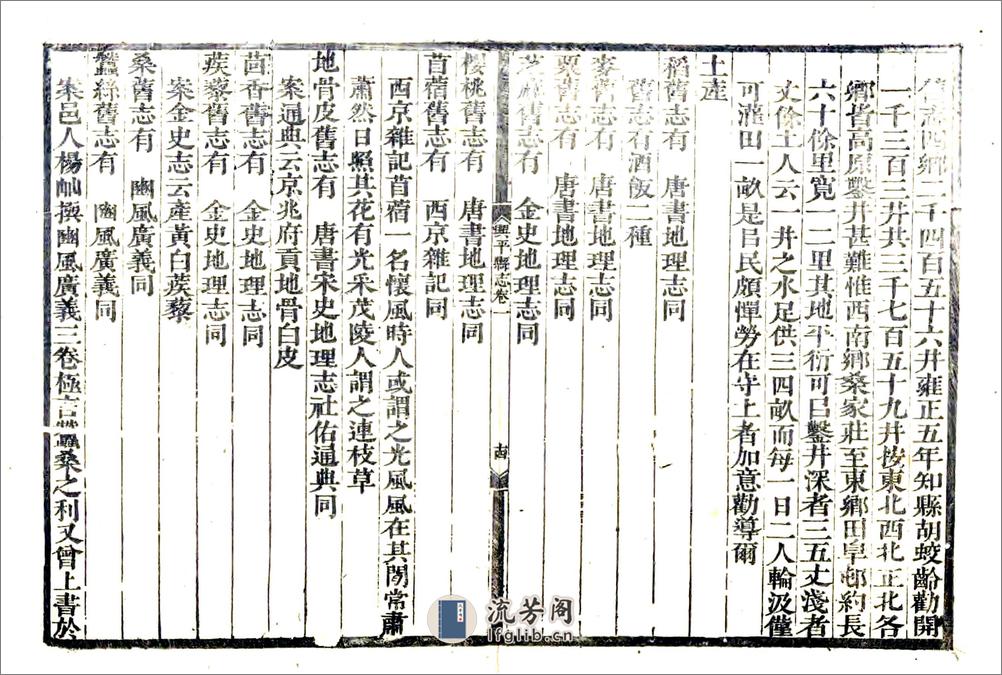 舊志四鄉二千四百五十六井雍正五年知縣胡蛟齡勸開
一千三百三井共三千七百五十九井按東北西北正北各
鄉皆高原鑿井甚難惟西南鄉桑家莊至東鄉田阜邨約長
六十餘里寬一二里其地平衍可㠯鑿井深者三五丈淺者
丈餘土人云一井之水足供三四畝而每一日二人輪汲僅
可灌田一畝是㠯民頗憚勞在守上者加意勸導爾
土產
稻舊志有　唐書地理志同
舊志石酒飯二種
麥舊志有　唐書地理志同
栗舊志有　唐書地理志同
芝麻舊志有　金史地理志同
興平縣志卷一
十四
櫻桃舊志有　唐書地理志同
苜蓿舊志有　西京雜記同
西京雜記苜蓿一名懷風時人或謂之光風風在其閒常肅
蕭然日照其花有光采茂陵人謂之連枝草
地骨皮舊志有　唐書宋史地理志社佑通典同
案通典云京兆府貢地骨白皮
茴香舊志有　金史地理志同
蒺藜舊志有　金史地理志同
案金史志云產黃白蒺藜
桑舊志有　豳風廣義同
蠶絲舊志有　豳風廣義同
案邑人楊屾撰豳風廣義三卷極言蠶桑之利又曾上書於
流芳阁
lfglib.cn